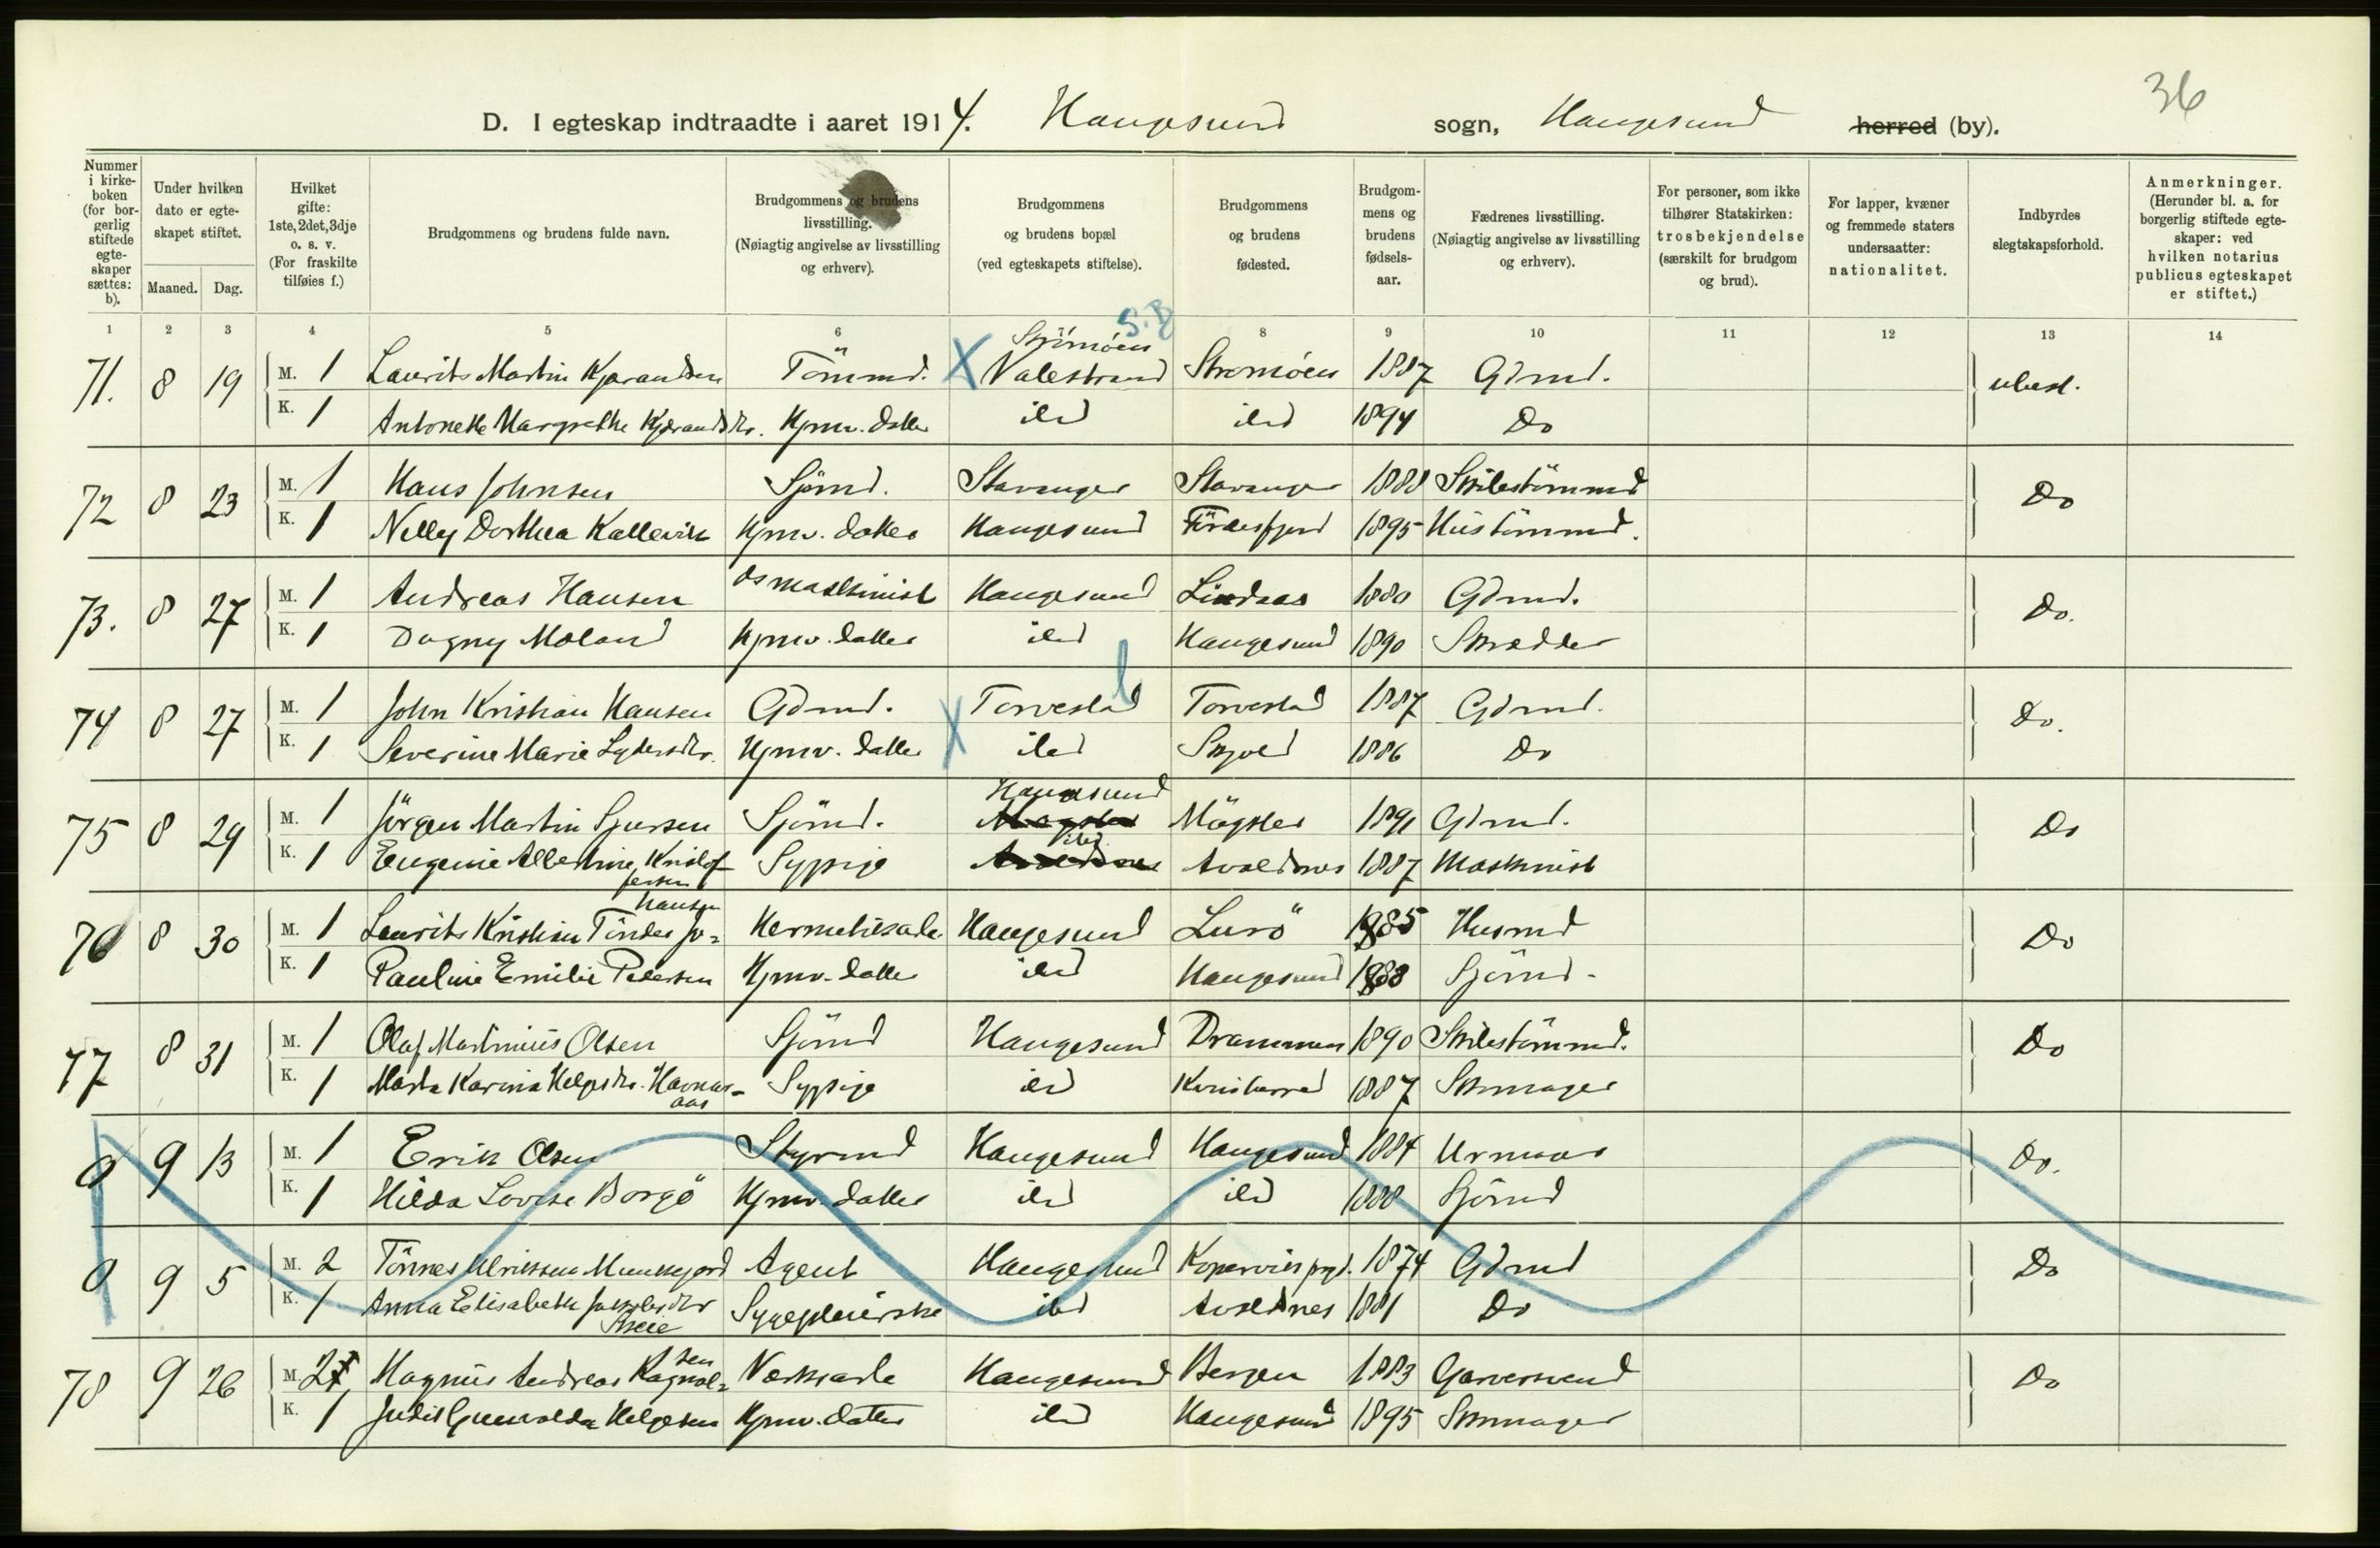 36
D. I egteskap indtraadte i aaret 1914. Haugesund sogn, Haugesund herred (by).
Nummer i kirke-boken (for bor-gerlig stiftede egte-skaper sættes: b).
Under hvilken dato er egte-skapet stiftet.
Maaned. Dag.
Hvilket gifte: 1ste, 2det, 3dje o. s. v. (For fraskilte tilføies f.)
Brudgommens og brudens fulde navn.
Brudgommens og brudens livsstilling. (Nøiagtig angivelse av livsstilling og erhverv).
Brudgommens og brudens bopæl (ved egteskapets stiftelse).
Brudgommens og brudens fødested.
Brudgom-mens og brudens fødsels-aar.
Fædrenes livsstilling. (Nøiagtig angivelse av livsstilling og erhverv).
For personer, som ikke tilhører Statskirken: trosbekjendelse (særskilt for brudgom og brud).
For lapper, kvæner og fremmede staters undersaatter: nationalitet.
Indbyrdes slegtskapsforhold.
Anmerkninger. (Herunder bl. a. for borgerlig stiftede egte-skaper: ved hvilken notarius publicus egteskapet er stiftet.)
1 2 3 4 5 6 8 9 10 11 12 13 14
S.B
Strömöen
71. 8 19 M. 1 Laurits Martin Kjærandsen Tömmd. X Valestrand Strömöen 1887 Gdmd. ubesl.
K. 1 Antonette Margrethe Kjærandsdtr. Hjmv. datter ibid ibid 1894 Do
72 8 23 M. 1 Hans Johnsen Sjömd. Stavanger Stavanger 1888 Skibstömmd Do
K. 1 Nelly Dorthea Kallevik Hjmv. datter Haugesund Fördesfjord 1895 Hustömmd.
73. 8 27 M. 1 Andreas Hansen Dsmaskinist Haugesund Lindaas 1880 Gdmd. Do.
K. 1 Dagny Moland Hjmv. datter ibid Haugesund 1890 Skrædder
74 8 27 M. 1 John Kristian Hansen Gdmd. X Torvestad Torvestad 1887 Gdmd. Do.
K. 1 Severine Marie Lydersdtr. Hjmv. datter ibid Skjold 1886 Do
Haugesund
75 8 29 M. 1 Jörgen Martin Sjursen Sjömd. Mögster 1891 Gdmd. Do
ibid
K. 1 Eugenie Albertine Kristof Sypige Avaldsnes Avaldsnes 1887 Maskinist
fersen
hansen
76 8 30 M. 1 Laurits Kristian Tindes Jo= Hermetikarb. Haugesund Lurö 1885 Husmd Do
K. 1 Pauline Emilie Pedersen Hjmv. datter ibid Haugesund 1888 Sjömd.
77 8 31 M. 1 Olaf Martinius Olsen Sjömd Haugesund Drammen 1890 Skibstömmd. Do
K. 1 Marta Karina Helgesdtr. Havnaas- Sypige ibid Kvinherred 1887 Skomager
aas
0 9 13 M. 1 Erik Olsen Styrmd Haugesund Haugesund 1884 Urmaker Do.
K. 1 Hilda Lovise Borgö Hjmv. datter ibid ibid 1888 Sjömd
0 9 5 M. 2 Tönnes Ulriksen Munkejord Agent Haugesund Kopervik prgd. 1874 Gdmd Do
K. 1 Anna Elisabeth Jakobsdtr Sygepleierske ibid Avaldsnes 1881 Do
Skeie
sen
78 9 26 M. 2 Magnus Andreas Ragnval= Verksarb. Haugesund Bergen 1883 Garversvend Do
K. 1 Judit Gunvalda Helgesen Hjmv. datter ibid Haugesund 1895 Skomager